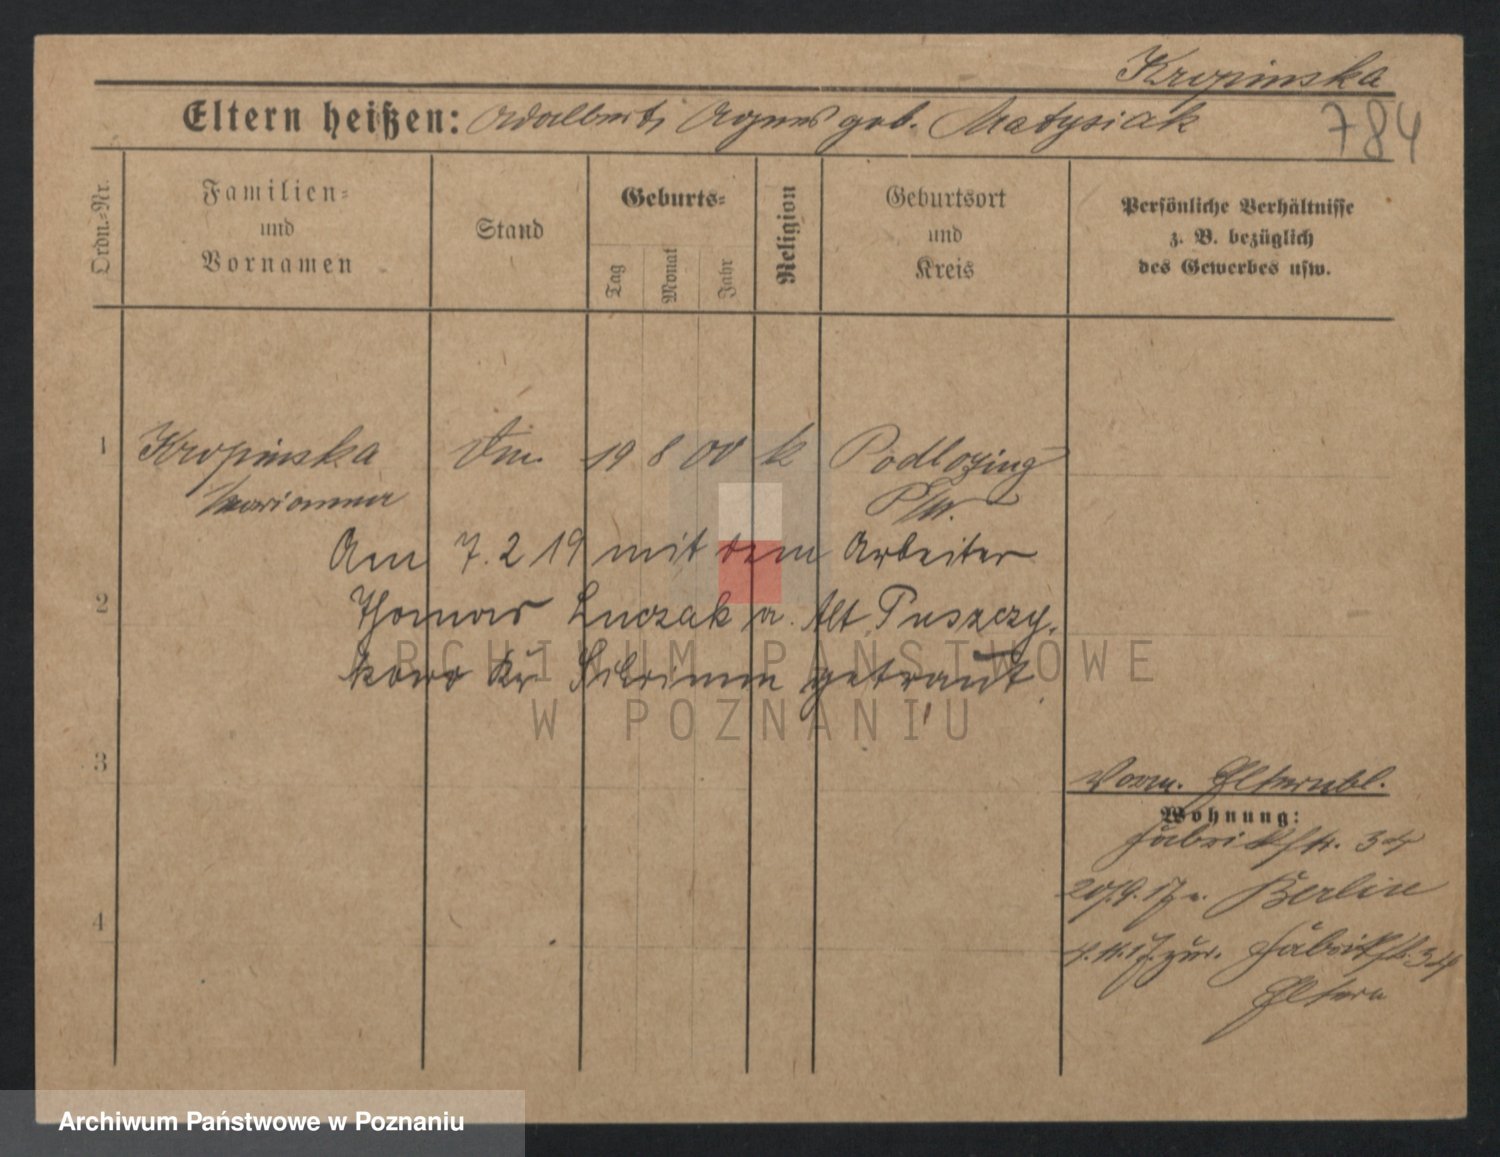 Kropinska
784
Eltern heißen: Adalbert, Agnes geb. Matysiak
Ordn.-Nr.
Familien- und Vornamen
Stand
Geburts-
Tag
Monat
Jahr
Religion
Geburtsort und Kreis
Persönliche Verhältnisse z. B. bezüglich des Gewerbes usw.
1 Kropinska 19 8 00 k
Marianna
Am 7.2 19 mit dem Arbeiter
2 Thomas Luczak a. Alt Puszczy.
kowo Kr Schrimm getraut
ARCHIWUM PAŃSTWOWE
W POZNANIU
3
Vorm. Elternbl.
Wohnung:
Fabrikstr. 34
Berlin
4
zur. Fabrikstr. 34
Eltern
Archiwum Państwowe w Poznaniu